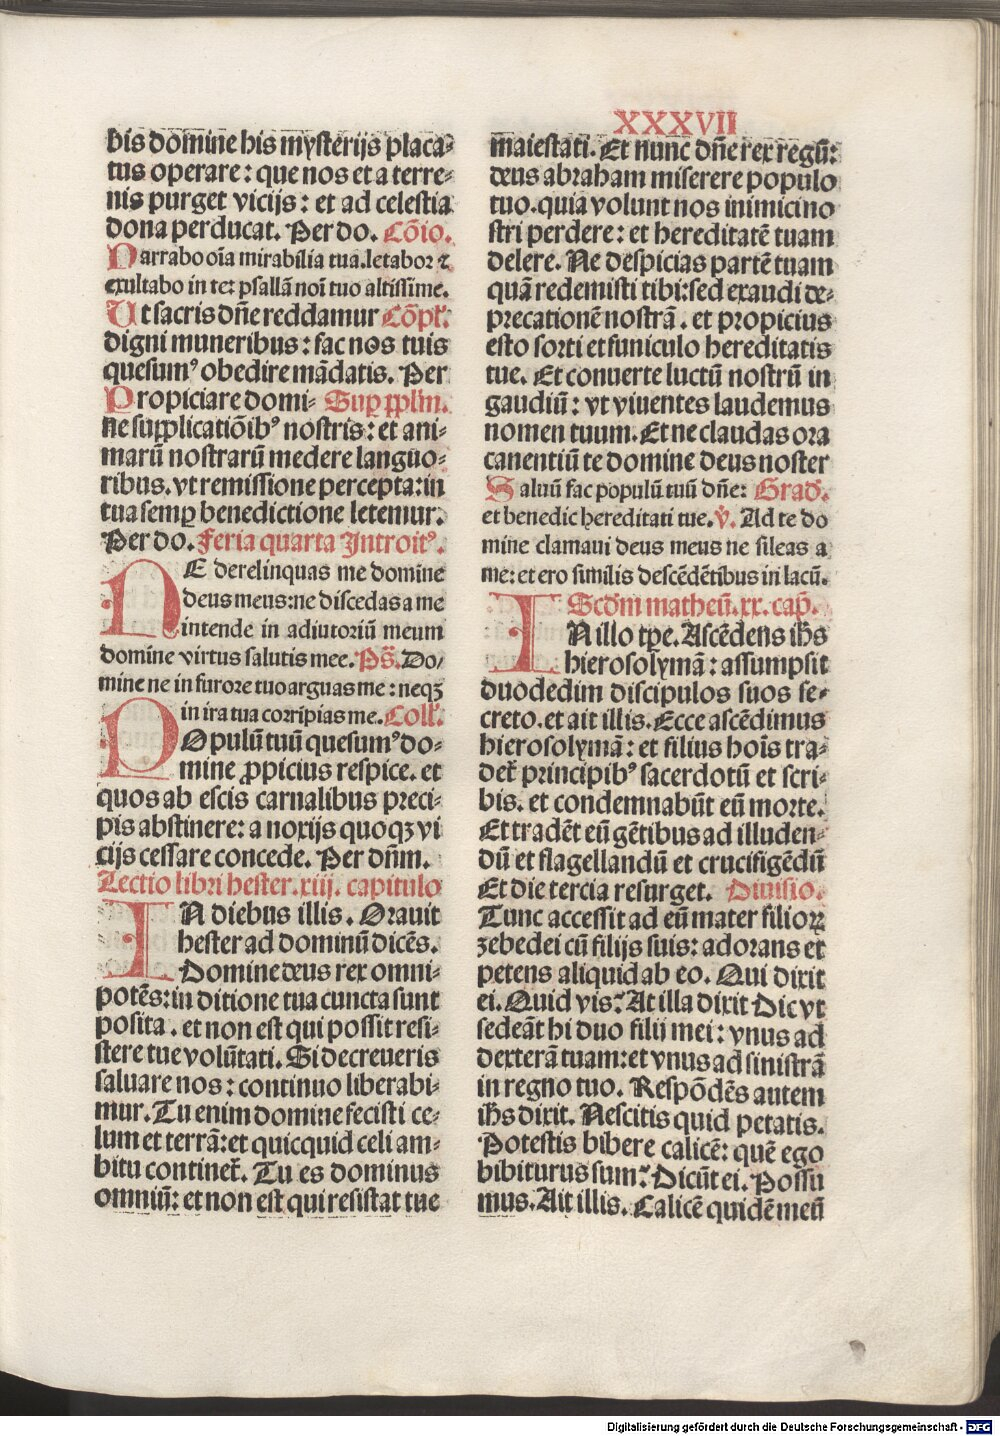 XXXVII
bis domine his mysterijs placa-
tus operare: que nos et a terre-
nis purget vicijs: et ad celestia
dona perducat. Per do. Cōio.
Narrabo oīa mirabilia tua. letabor ⁊
exultabo in te: psallā noī tuo altissime.
Ut sacris dn̄e reddamur Cōpl'.
digni muneribus: fac nos tuis
quesumꝰ obedire mādatis. Per
Propiciare domi- Suꝑ ppl'm.
ne supplicatiōibꝰ nostris: et ani-
marū nostrarū medere languo-
ribus. vt remissione percepta: in
tua semꝑ benedictione letemur.
Per do. Feria quarta Introitꝰ.
NE derelinquas me domine
deus meus: ne discedas a me
intende in adiutoriū meum
domine virtus salutis mee. Ps̄. Do/
mine ne in furore tuo arguas me: neqꝫ
in ira tua corripias me. Coll'.
POpulū tuū quesumꝰ do-
mine ꝓpicius respice. et
quos ab escis carnalibus preci-
pis abstinere: a noxijs quoqꝫ vi
cijs cessare concede. Per dn̄m.
Lectio libri hester. xiij. capitulo
IN diebus illis. Orauit
hester ad dominū dicēs.
Domine deus rex omni-
potēs: in ditione tua cuncta sunt
posita. et non est qui possit resi-
stere tue volūtati. Si decreueris
saluare nos: continuo liberabi-
mur. Tu enim domine fecisti ce-
lum et terrā: et quicquid celi am-
bitu continet'. Tu es dominus
omniū: et non est qui resistat tue
maiestati. Et nunc dn̄e rex regū:
deus abraham miserere populo
tuo. quia volunt nos inimici no
stri perdere: et hereditatē tuam
delere. Ne despicias partē tuam
quā redemisti tibi: sed exaudi de-
precationē nostrā. et propicius
esto sorti et funiculo hereditatis
tue. Et conuerte luctū nostrū in
gaudiū: vt viuentes laudemus
nomen tuum. Et ne claudas ora
canentiū te domine deus noster
Saluū fac populū tuū dn̄e: Grad'.
et benedic hereditati tue. V̇. Ad te do
mine clamaui deus meus ne sileas a
me: et ero similis descēdētibus in lacū.
Scd'm matheū. xx. cap̄.
IN illo tp̄e. Ascēdens ih̄s
hierosolymā: assumpsit
duodecim discipulos suos se-
creto. et ait illis. Ecce ascēdimus
hierosolymā: et filius hoīs tra-
det' principibꝰ sacerdotū et scri-
bis. et condemnabūt eū morte.
Et tradēt eū gētibus ad illuden-
dū et flagellandū et crucifigēdū
Et die tercia resurget. Diuisio.
Tunc accessit ad eū mater filioꝝ
zebedei cū filijs suis: adorans et
petens aliquid ab eo. Qui dixit
ei. Quid vis? At illa dixit Dic vt
sedeāt hi duo filii mei: vnus ad
dexterā tuam: et vnus ad sinistrā
in regno tuo. Respōdēs autem
ih̄s dixit. Nescitis quid petatis.
Potestis bibere calicē: quē ego
bibiturus sum? Dicūt ei. Possu
mus. Ait illis. Calicē quidē meū
Digitalisierung gefördert durch die Deutsche Forschungsgemeinschaft - DFG